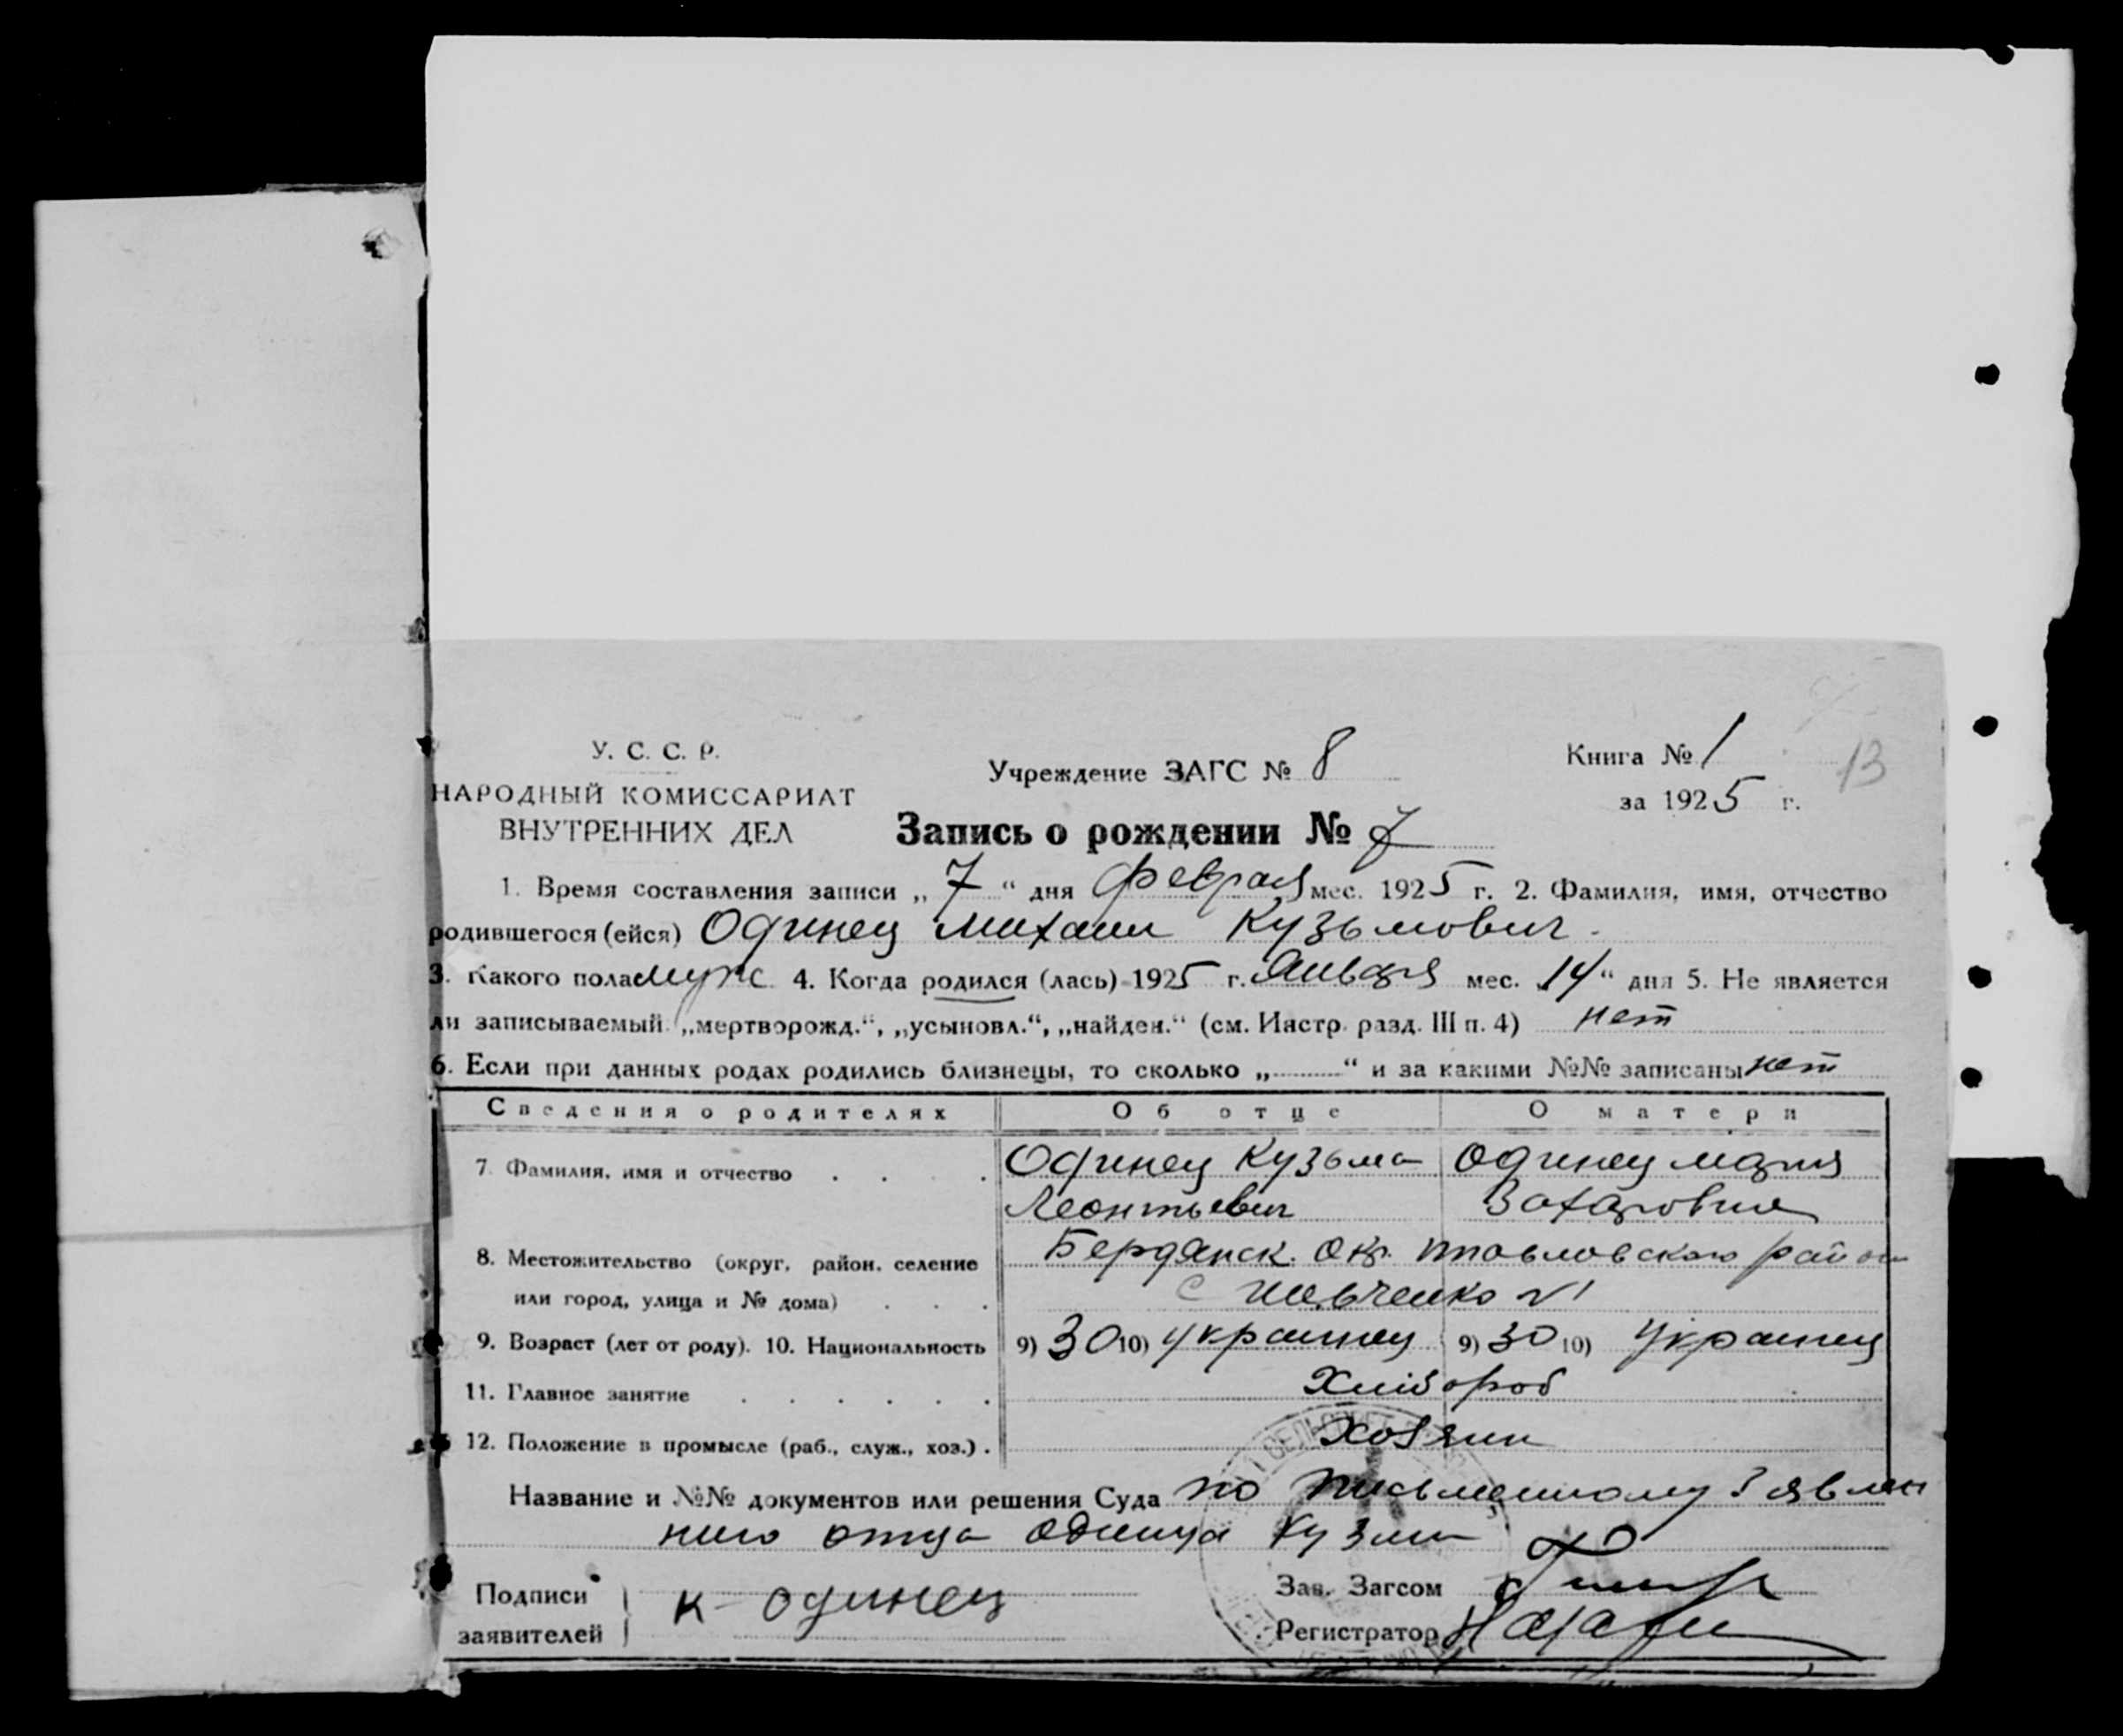 У. С. С. Р.
НАРОДНЫЙ КОМИССАРИАТ
ВНУТРЕННИХ ДЕЛ
Учреждение ЗАГС № 8
Книга № 1
13
за 1925 г.
Запись о рождении № 7
1. Время составления записи „ 7 “ дня февраля мес. 1925 г. 2. Фамилия, имя, отчество
родившегося (ейся) Одинец Михаил Кузьмович
3. Какого пола муж 4. Когда родился (лась) 1925 г. Января мес. „14“ дня 5. Не является
ли записываемый „мертворожд.“, „усыновл.“, „найден.“ (см. Инстр. разд. III п. 4) нет
6. Если при данных родах родились близнецы, то сколько „ “ и за какими №№ записаны нет
Сведения о родителях Об отце О матери
7. Фамилия, имя и отчество Одинец Кузьма Одинец Мария
Леонтьевич Захаровна
8. Местожительство (округ, район, селение Бердянск. Окр. района
или город, улица и № дома) с Шевченко
9. Возраст (лет от роду). 10. Национальность 9) 30 10) украинец 9) 30 10) украинец
11. Главное занятие Хлібороб
12. Положение в промысле (раб., служ., хоз.) Хозяин
Название и №№ документов или решения Суда по письменному Заявлен
нию отца Одинца
Подписи
заявителей К Одинец
Зав. Загсом
Регистратор